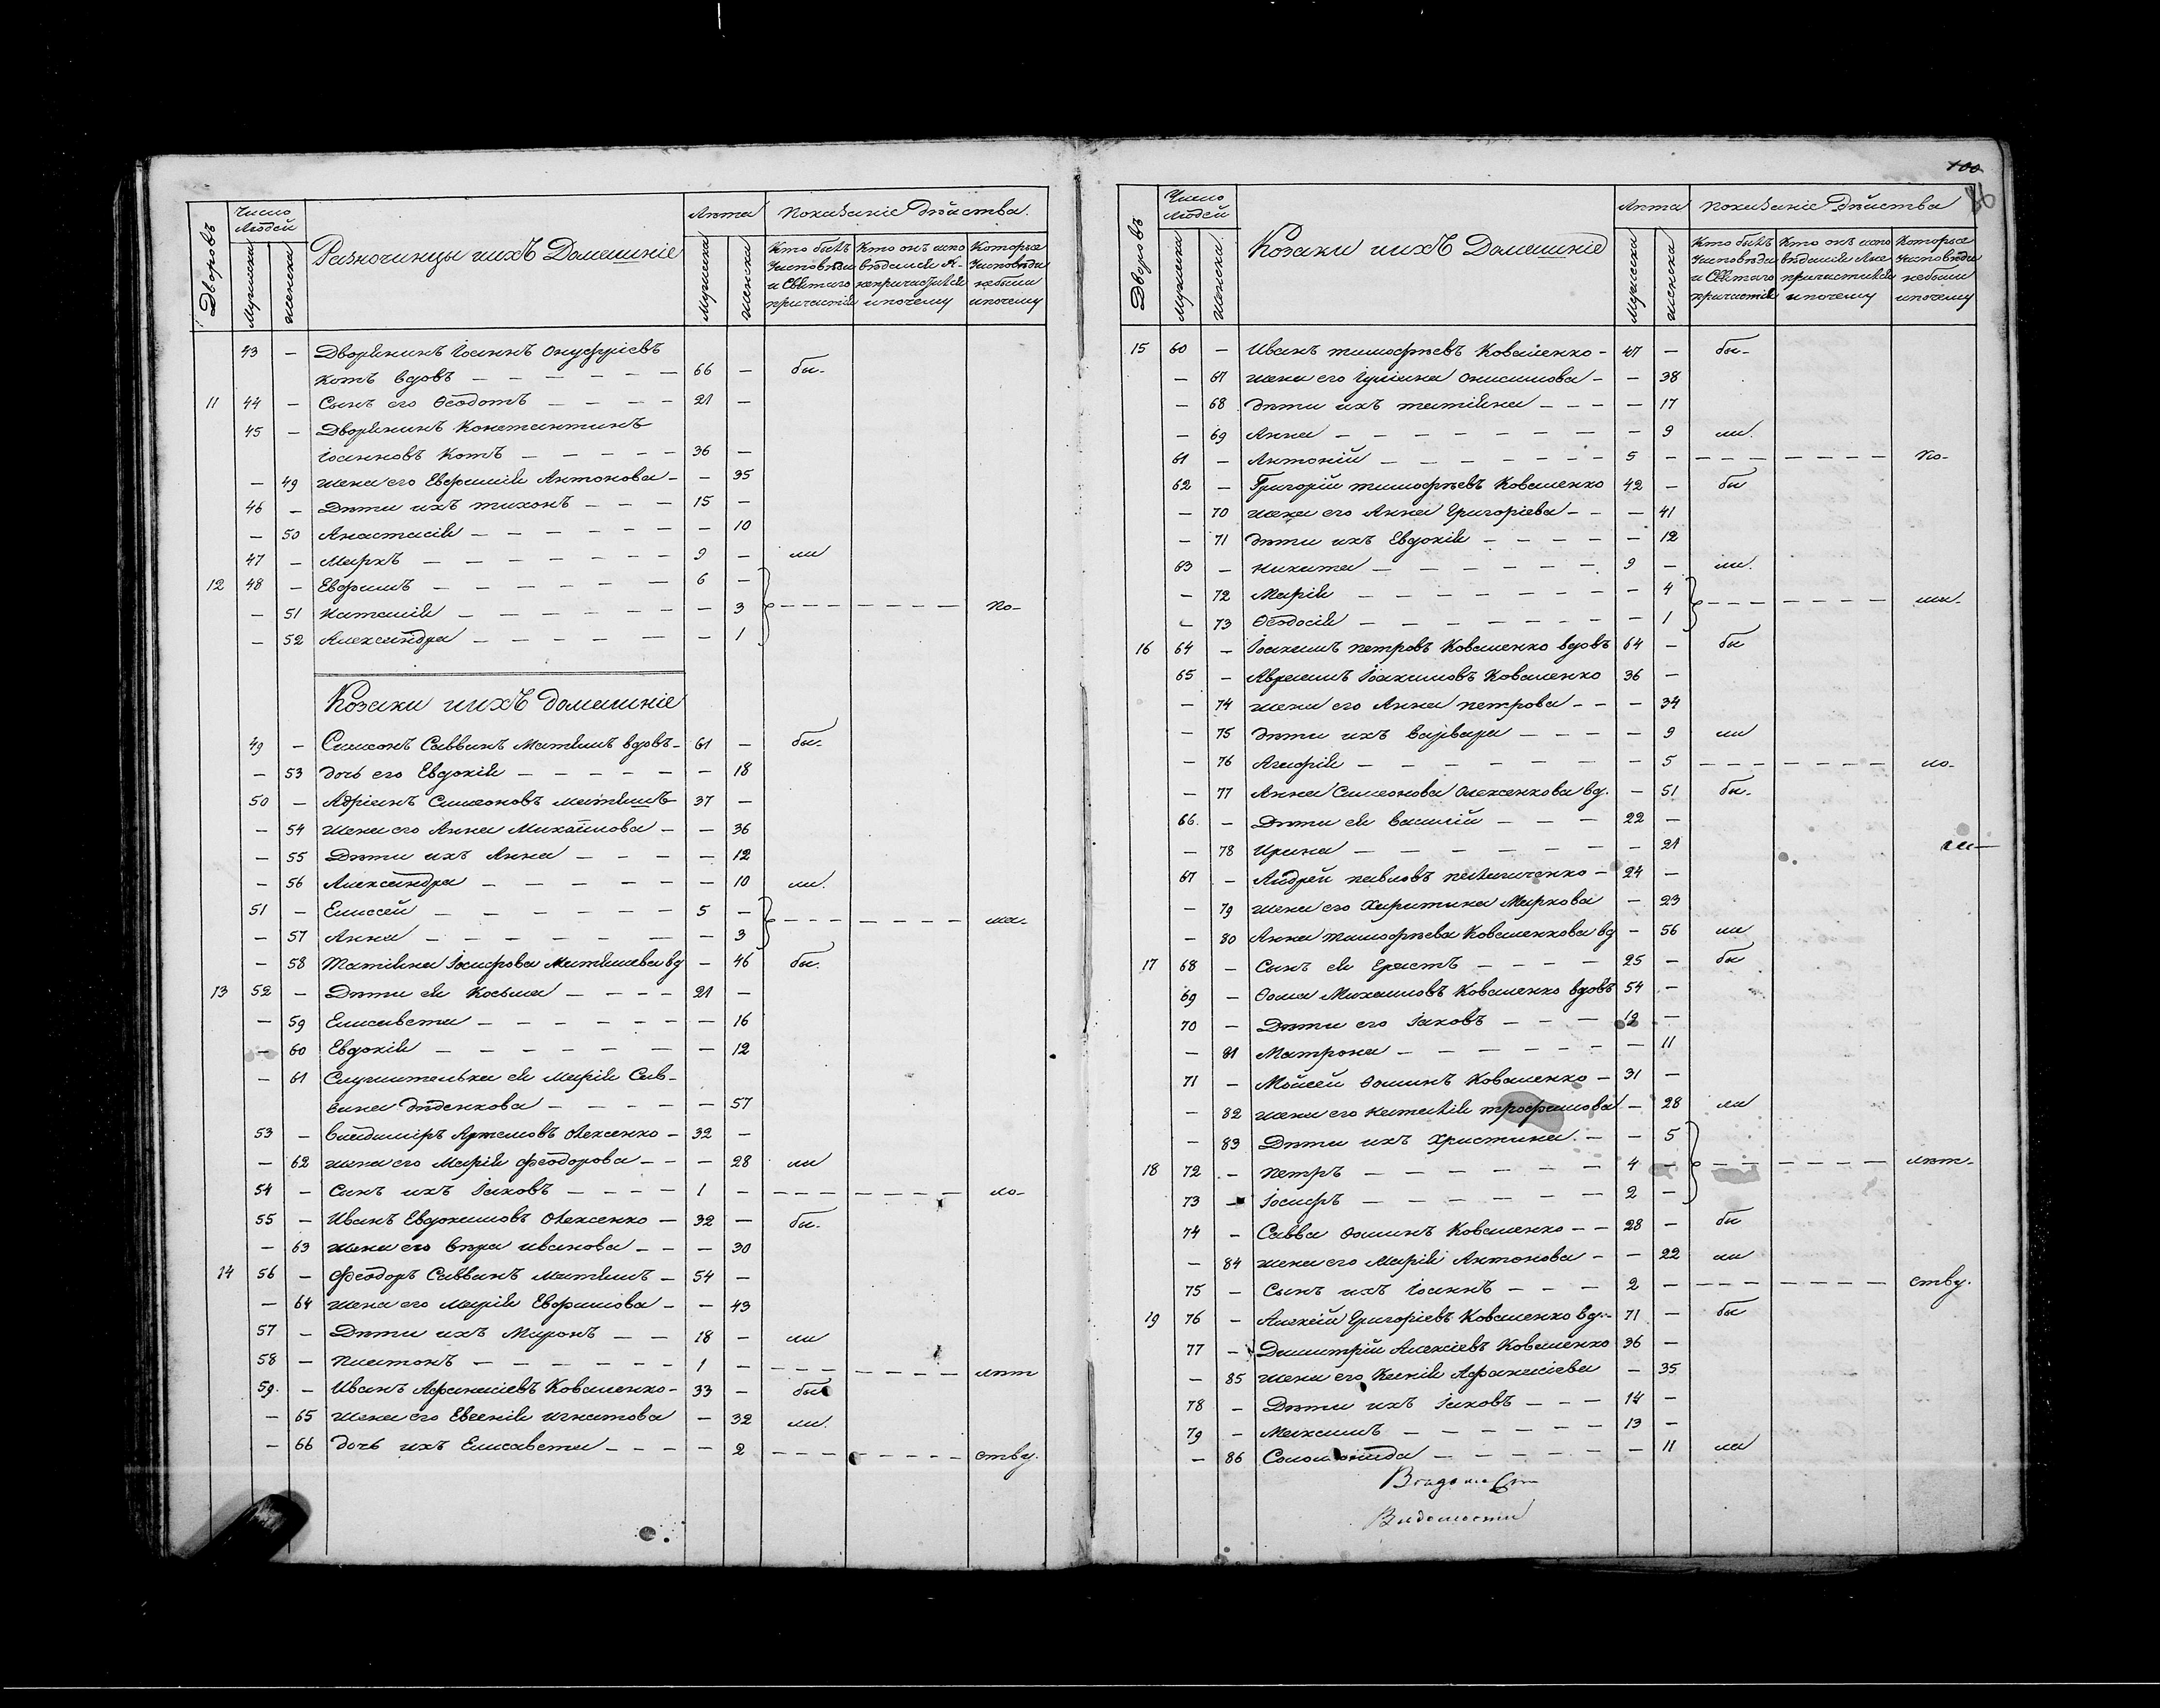 Дворовъ
Число Людей
Мужеска
женска
Разночинцы и ихъ Домашніе
Лѣта
Мужеска
женска
Показаніе Дѣйства.
Кто былъ у исповѣди и Святаго причастія
Кто онъ испо вѣдался А не причастился и почему
Которые У исповѣди не были и почему
43 — Дворянинъ Іоаннъ Онуфріевъ
Котъ вдовъ — 66 — бы-
11 44 — Сынъ его Ѳеодотъ — 21 —
45 — Дворянинъ Константинъ
Іоанновъ Котъ — 36 —
— 49 жена его Евфимія Антонова — — 35
46 — Дѣти ихъ Тихонъ — 15 —
— 50 Анастасія — — 10
47 — Маркъ — 9 — ли
12 48 — Ефимъ — 6 —
— 51 Наталія — — 3 — по-
— 52 Александра — — 1
Козаки и ихъ домашніе
49 — Симеонъ Саввинъ Матяшъ вдовъ — 61 — бы-
— 53 дочь его Евдокія — — 18
50 — Адріанъ Симеоновъ Матяшъ 37 —
— 54 жена его Анна Михайлова — — 36
— 55 Дѣти ихъ Анна — — 12
— 56 Александра — — 10 ли.
51 — Елисей — 5 —
— 57 Анна — — 3 — ма-
— 58 Татіана Іосифова Матяшева вд — 46 бы.
13 52 — Дѣти ея Косьма — 21 —
— 59 Елисавета — — 16
— 60 Евдокія — — 12
— 61 Служителька ея Марія Сав-
вина Дѣденкова — — 57
53 — Владиміръ Артемовъ Олексенко — 32 —
— 62 жена его Марія Феодорова — — 28 ли
54 — Сынъ ихъ Іаковъ — 1 — ло-
55 — Иванъ Евдокимовъ Олексенко — 32 — бы-
— 63 жена его Вѣра Иванова — — 30
14 56 — Феодоръ Саввинъ Матяшъ — 54 —
— 64 жена его Марія Ефимова — — 43
57 — Дѣти ихъ Миронъ — 18 — ли
58 — Платонъ — 1 — лѣт
59. — Иванъ Афанасіевъ Коваленко — 33 — бы
— 65 жена его Евгенія Игнатова — 32 ли.
— 66 дочь ихъ Елисавета — — 2 — ству.
100
Дворовъ
Число Людей
Мужеска
женска
Козаки и ихъ Домашніе
Лѣта
Мужеска
женска
Показаніе Дѣйства
Кто былъ У исповѣди и Святаго причастія
Кто онъ испо вѣдался А не причастился и почему
Которые У исповѣди не были и почему
15 60 — Иванъ Тимофѣевъ Коваленко — 47 — бы-
— 67 жена его Іуліана Онисимова — — 38
— 68 Дѣти ихъ Татіана — — 17
— 69 Анна — — 9 ли.
61 — Антоній — 5 — по-
62 — Григорій Тимофѣевъ Коваленко 42 — бы
— 70 жена его Анна Григоріева — — 41
— 71 Дѣти ихъ Евдокія — — 12
63 — Никита — 9 — ли.
— 72 Марія — — 4 — ма-
— 73 Ѳеодосія — — 1
16 64 — Іоакимъ Петровъ Коваленко вдовъ 64 — бы
65 — Авраамъ Іоакимовъ Коваленко 36 —
— 74 жена его Анна Петрова — — 34
— 75 Дѣти ихъ Варвара — — 9 ли
— 76 Агафія — — 5 — ло-
— 77 Анна Симеонова Олексенкова вд. — 51 бы-
66. — Дѣти ея Василій — 22 —
— 78 Ирина — — 21
67 — Андрей Павловъ — 24 —
— 79 жена его Харитина Маркова — 23
— 80 Анна Тимофѣева Коваленкова вд — 56 ли
17 68 — Сынъ ея Ерастъ — 25 — бы
69 — Ѳома Михаиловъ Коваленко вдовъ 54 —
70 — Дѣти его Іаковъ — 12 —
— 81 Матрона — — 11
71 — Мойсей Ѳоминъ Коваленко — 31 —
— 82 жена его Наталія Трофимова — 28 ли
— 83 Дѣти ихъ Христина. — — 5
18 72 — Петръ — 4 — лѣт-
73 — Іосифъ — 2 —
74 — Савва Ѳоминъ Коваленко — 28 — бы
— 84 жена его Марія Антонова — — 22 ли
75 — Сынъ ихъ Іоаннъ — 2 — ству.
19 76 — Алексій Григоріевъ Коваленко вд. — 71 — бы
77 — Димитрій Алексіевъ Коваленко 36 —
— 85 жена его Ксенія Афанасіева — 35
78 — Дѣти ихъ Іаковъ — 14 —
79 — Максимъ — 13 —
— 86 Соломонида — — 11 ли